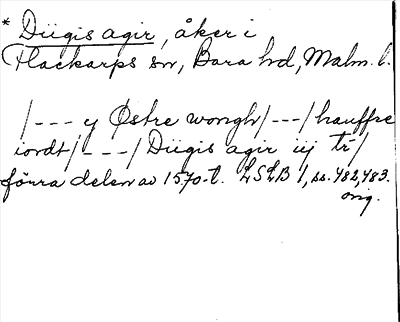 * Diigis agir, åker i
Flackarps sn, Bara hd, Malm. l.
/--- y Østre wongh/---/hauffre
iordt/---/Diigis agir iij tr/
förra delen av 1570-t. LSLB 1, ss. 482, 483.
orig.